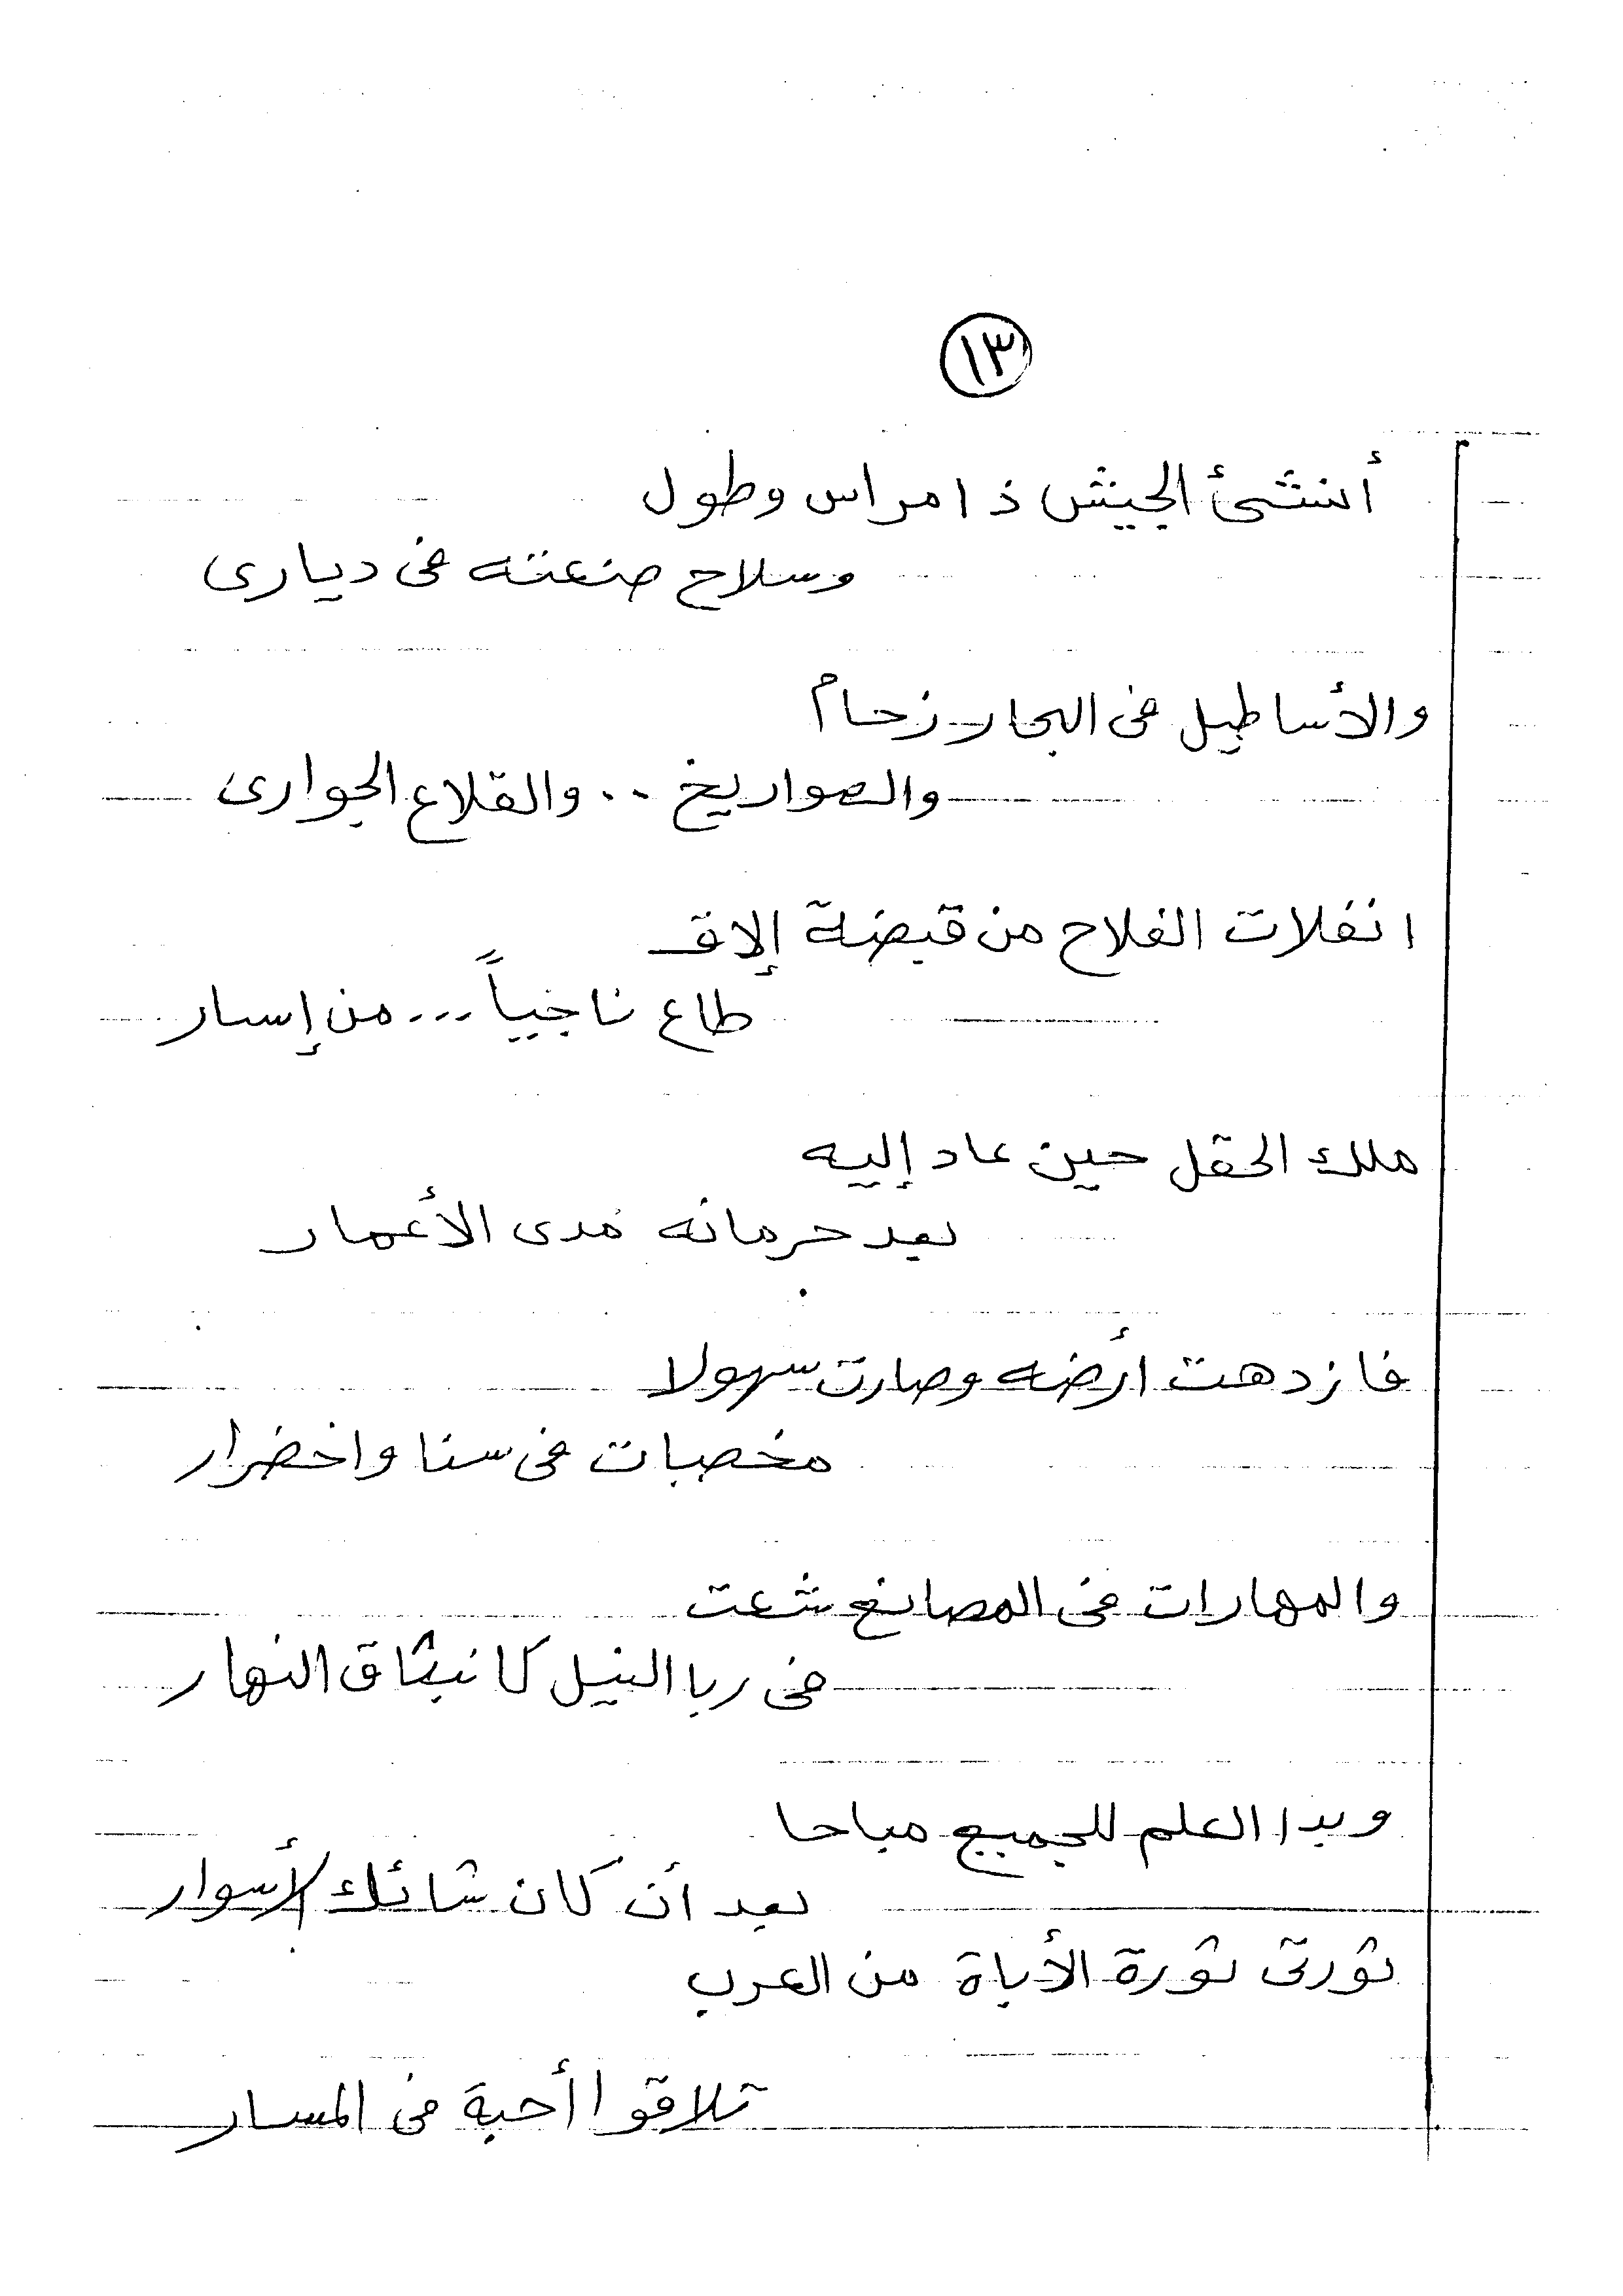 ١٣
أنشئ الجيش ذا مراس وطول
وسلاح صنعته فى ديارى
والأساطيل فى البحار زحام
والصواريخ .. والقلاع الجوارى
انفلات الفلاح من قبضة إلاقـ
طاع ناجياً ... من إسار
ملك الحقل حين عاد إليه
بعد حرمانه مدى الأعمار
فازدهت أرضه وصارت سهولا
مخصبات فى سنا واخضرار
والمهارات فى المصانع شعت
فى ربا النيل كانبثاق النهار
وبدا العلم للجميع مباحا
بعد أن كان شائك الأسوار
ثورتى ثورة الأباة من العرب
تلاقوا أحبة فى المسار